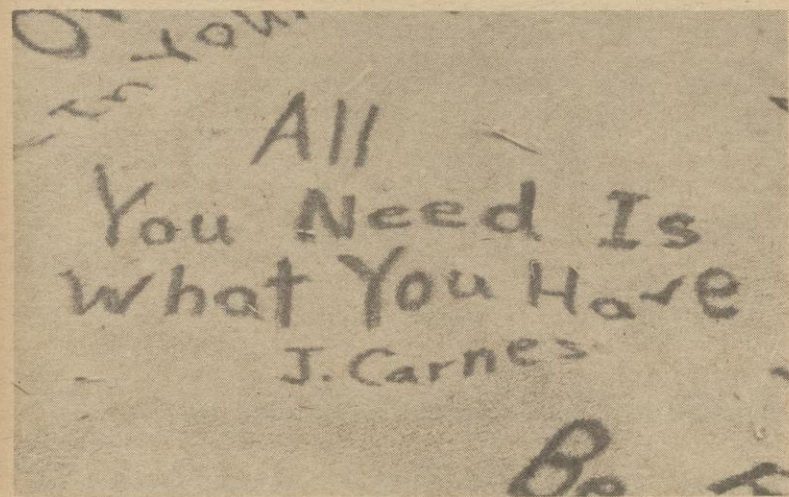 In You
All
You Need Is
What You Have
J. Carnes
Be